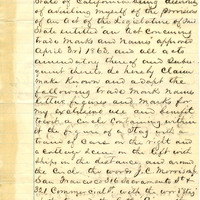 State of California being desirous
of availing myself of the provisions
of an Act of the Legislature of said
State entitled an Act concerning
trade Marks and Names approved
April 3rd 1863, and all acts
amendatory thereof and subse-
quent thereto do hereby claim
make known and adopt the
following trade Mark Name
letters figures and Marks for
my exclusive use and benefit
to wit a circle containing within
it the figure of a Stag with a
train of Cars on the right and
a on the left with
ships in the distance, and around
the circle the words J. C. Morrison
San Francisco
321 Commercial St. with the word Stag